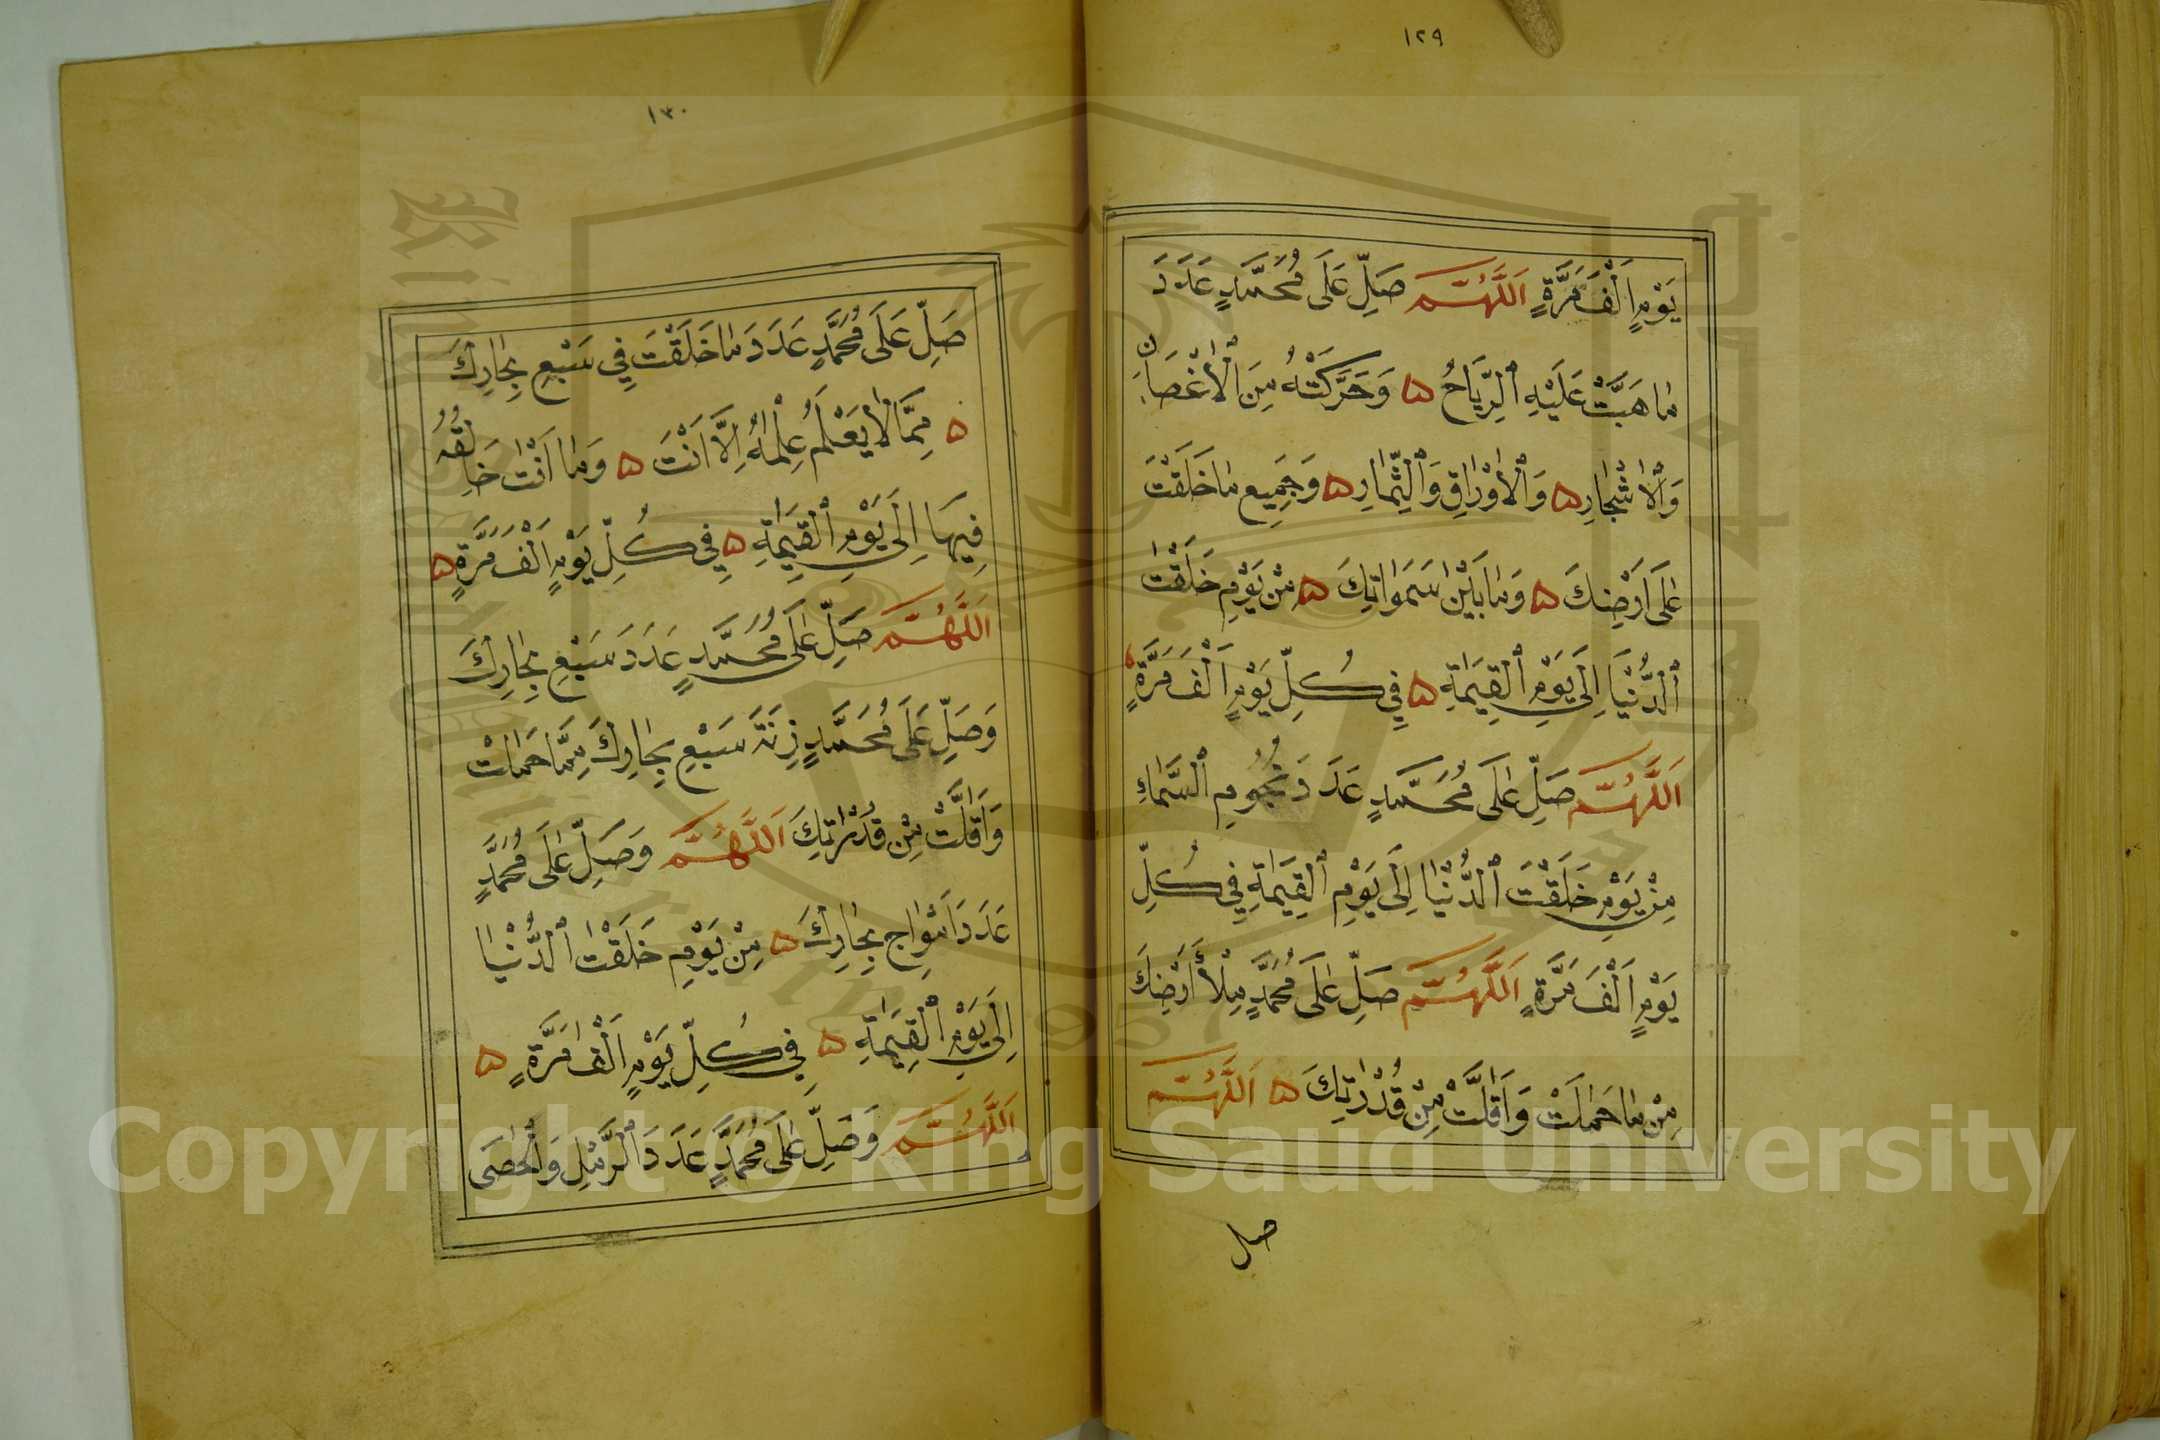 ١٢٩
يَوْمٍ اَلْفَ مَرَّةٍ اَللّٰهُمَّ صَلِّ عَلَى مُحَمَّدٍ عَدَدَ
مَا هَبَّتْ عَلَيْهِ ٱلرِّيَاحُ ۵ وَحَرَّكَتْهُ مِنَ الْاَغْصَانِ
وَٱلْاَشْجَارِ ۵ وَٱلْاَوْرَاقِ وَٱلثِّمَارِ ۵ وَجَمِيعِ مَا خَلَقْتَ
عَلَى اَرْضِكَ ۵ وَمَا بَيْنَ سَمٰوَاتِكَ ۵ مِنْ يَوْمِ خَلَقْتَ
ٱلدُّنْيَا اِلَى يَوْمِ ٱلْقِيٰمَةِ ۵ فِي كُلِّ يَوْمٍ اَلْفَ مَرَّةٍ ۵
اَللّٰهُمَّ صَلِّ عَلَى مُحَمَّدٍ عَدَدَ نُجُومِ ٱلسَّمَاءِ
مِنْ يَوْمِ خَلَقْتَ ٱلدُّنْيَا اِلَى يَوْمِ ٱلْقِيٰمَةِ فِي كُلِّ
يَوْمٍ اَلْفَ مَرَّةٍ اَللّٰهُمَّ صَلِّ عَلَى مُحَمَّدٍ مِلْأَ اَرْضِكَ
مِنْ مَا حَمَلَتْ وَاَقَلَّتْ مِنْ قُدْرَتِكَ ۵ اَللّٰهُمَّ
صل
١٣٠
صَلِّ عَلَى مُحَمَّدٍ عَدَدَ مَا خَلَقْتَ فِي سَبْعِ بِحَارِكَ
۵ مِمَّا لَا يَعْلَمُ عِلْمَهُ اِلَّا اَنْتَ ۵ وَمَا اَنْتَ خَالِقُهُ
فِيهَا اِلَى يَوْمِ ٱلْقِيٰمَةِ ۵ فِي كُلِّ يَوْمٍ اَلْفَ مَرَّةٍ ۵
اَللّٰهُمَّ صَلِّ عَلَى مُحَمَّدٍ عَدَدَ سَبْعِ بِحَارِكَ
وَصَلِّ عَلَى مُحَمَّدٍ زِنَةَ سَبْعِ بِحَارِكَ مِمَّا حَمَلَتْ
وَاَقَلَّتْ مِنْ قُدْرَتِكَ اَللّٰهُمَّ وَصَلِّ عَلَى مُحَمَّدٍ
عَدَدَ اَمْوَاجِ بِحَارِكَ ۵ مِنْ يَوْمِ خَلَقْتَ ٱلدُّنْيَا
اِلَى يَوْمِ ٱلْقِيٰمَةِ ۵ فِي كُلِّ يَوْمٍ اَلْفَ مَرَّةٍ ۵
اَللّٰهُمَّ وَصَلِّ عَلَى مُحَمَّدٍ عَدَدَ ٱلرَّمْلِ وَٱلْحَصَى
Copyright © King Saud University
1957